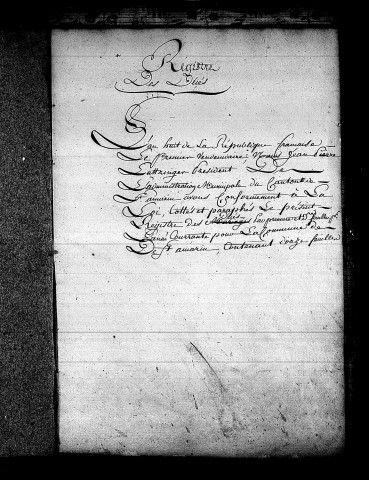 Registre
Des Décés
L'an huit de La République francaise
Le Premier Vendemiaire, Nous Jean Pierre
President De
L'administration Municipal du Canton de
St amarin avons Conformement à La
Loi, Cottés et paraphés Le présent
Registre des
Courrante pour La Commune de
De St amarin, Contenant feuillets